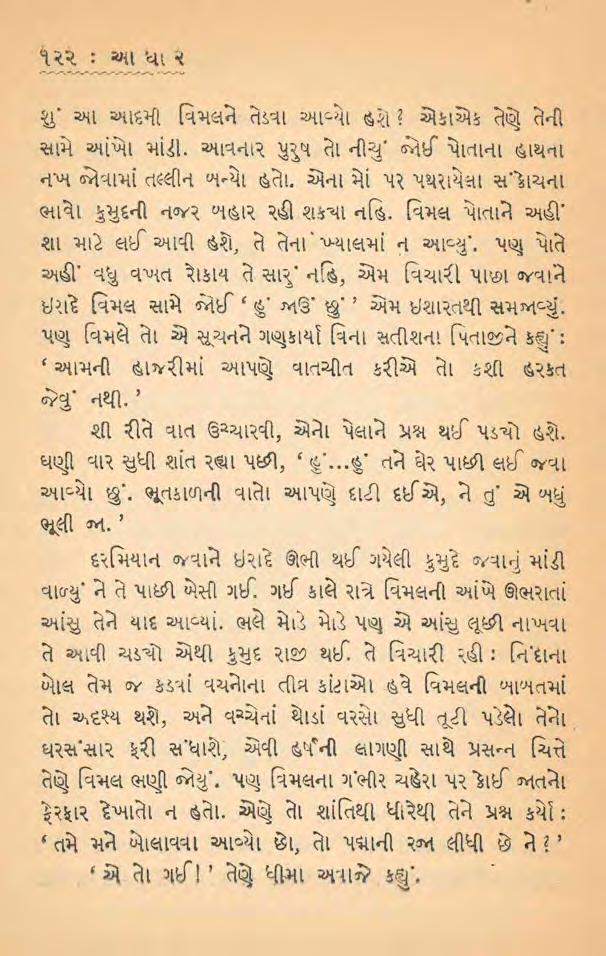 ૧૨૨ : આ ધા ર
શું આ આદમી વિમલને તેડવા આવ્યો હશે? એકાએક તેણે તેની
સામે આંખો માંડી. આવનાર પુરુષ તો નીચું જોઈ પોતાના હાથના
નખ જોવામાં તલ્લીન બન્યો હતો. એના મોં પર પથરાયેલા સંકોચના
ભાવો કુમુદની નજર બહાર રહી શક્યા નહિ. વિમલ પોતાને અહીં
શા માટે લઈ આવી હશે, તે તેના ખ્યાલમાં ન આવ્યું. પણ પોતે
અહીં વધુ વખત રોકાય તે સારું નહિ, એમ વિચારી પાછા જવાને
ઇરાદે વિમલ સામે જોઈ ‘ હું જાઉં છું ’ એમ ઇશારતથી સમજાવ્યું.
પણ વિમલે તો એ સૂચનને ગણકાર્યા વિના સતીશના પિતાજીને કહ્યું :
‘ આમની હાજરીમાં આપણે વાતચીત કરીએ તો કશી હરકત
જેવું નથી. ’
શી રીતે વાત ઉચ્ચારવી, એનો પેલાને પ્રશ્ન થઈ પડ્યો હશે.
ઘણી વાર સુધી શાંત રહ્યા પછી, ‘ હું...હું તને ઘેર પાછી લઈ જવા
આવ્યો છું. ભૂતકાળની વાતો આપણે દાટી દઈએ, ને તું એ બધું
ભૂલી જા. ’
દરમિયાન જવાને ઇરાદે ઊભી થઈ ગયેલી કુમુદે જવાનું માંડી
વાળ્યું ને તે પાછી બેસી ગઈ. ગઈ કાલે રાત્રે વિમલની આંખે ઊભરાતાં
આંસુ તેને યાદ આવ્યાં. ભલે મોડે મોડે પણ એ આંસુ લૂછી નાખવા
તે આવી ચડ્યો એથી કુમુદ રાજી થઈ. તે વિચારી રહી : નિંદાના
બોલ તેમ જ કડવાં વચનોના તીવ્ર કાંટાઓ હવે વિમલની બાબતમાં
તો અદશ્ય થશે, અને વચ્ચેનાં થોડાં વરસો સુધી તૂટી પડેલો તેનો
ઘરસંસાર ફરી સંધાશે, એવી હર્ષની લાગણી સાથે પ્રસન્ન ચિત્તે
તેણે વિમલ ભણી જોયું. પણ વિમલના ગંભીર ચહેરા પર કોઈ જાતનો
ફેરફાર દેખાતો ન હતો. એણે તો શાંતિથી ધીરેથી તેને પ્રશ્ન કર્યો :
‘ તમે મને બોલાવવા આવ્યો છો, તો પદ્માની રજા લીધી છે ને ? ’
‘ એ તો ગઈ ! ’ તેણે ધીમા અવાજે કહ્યું.